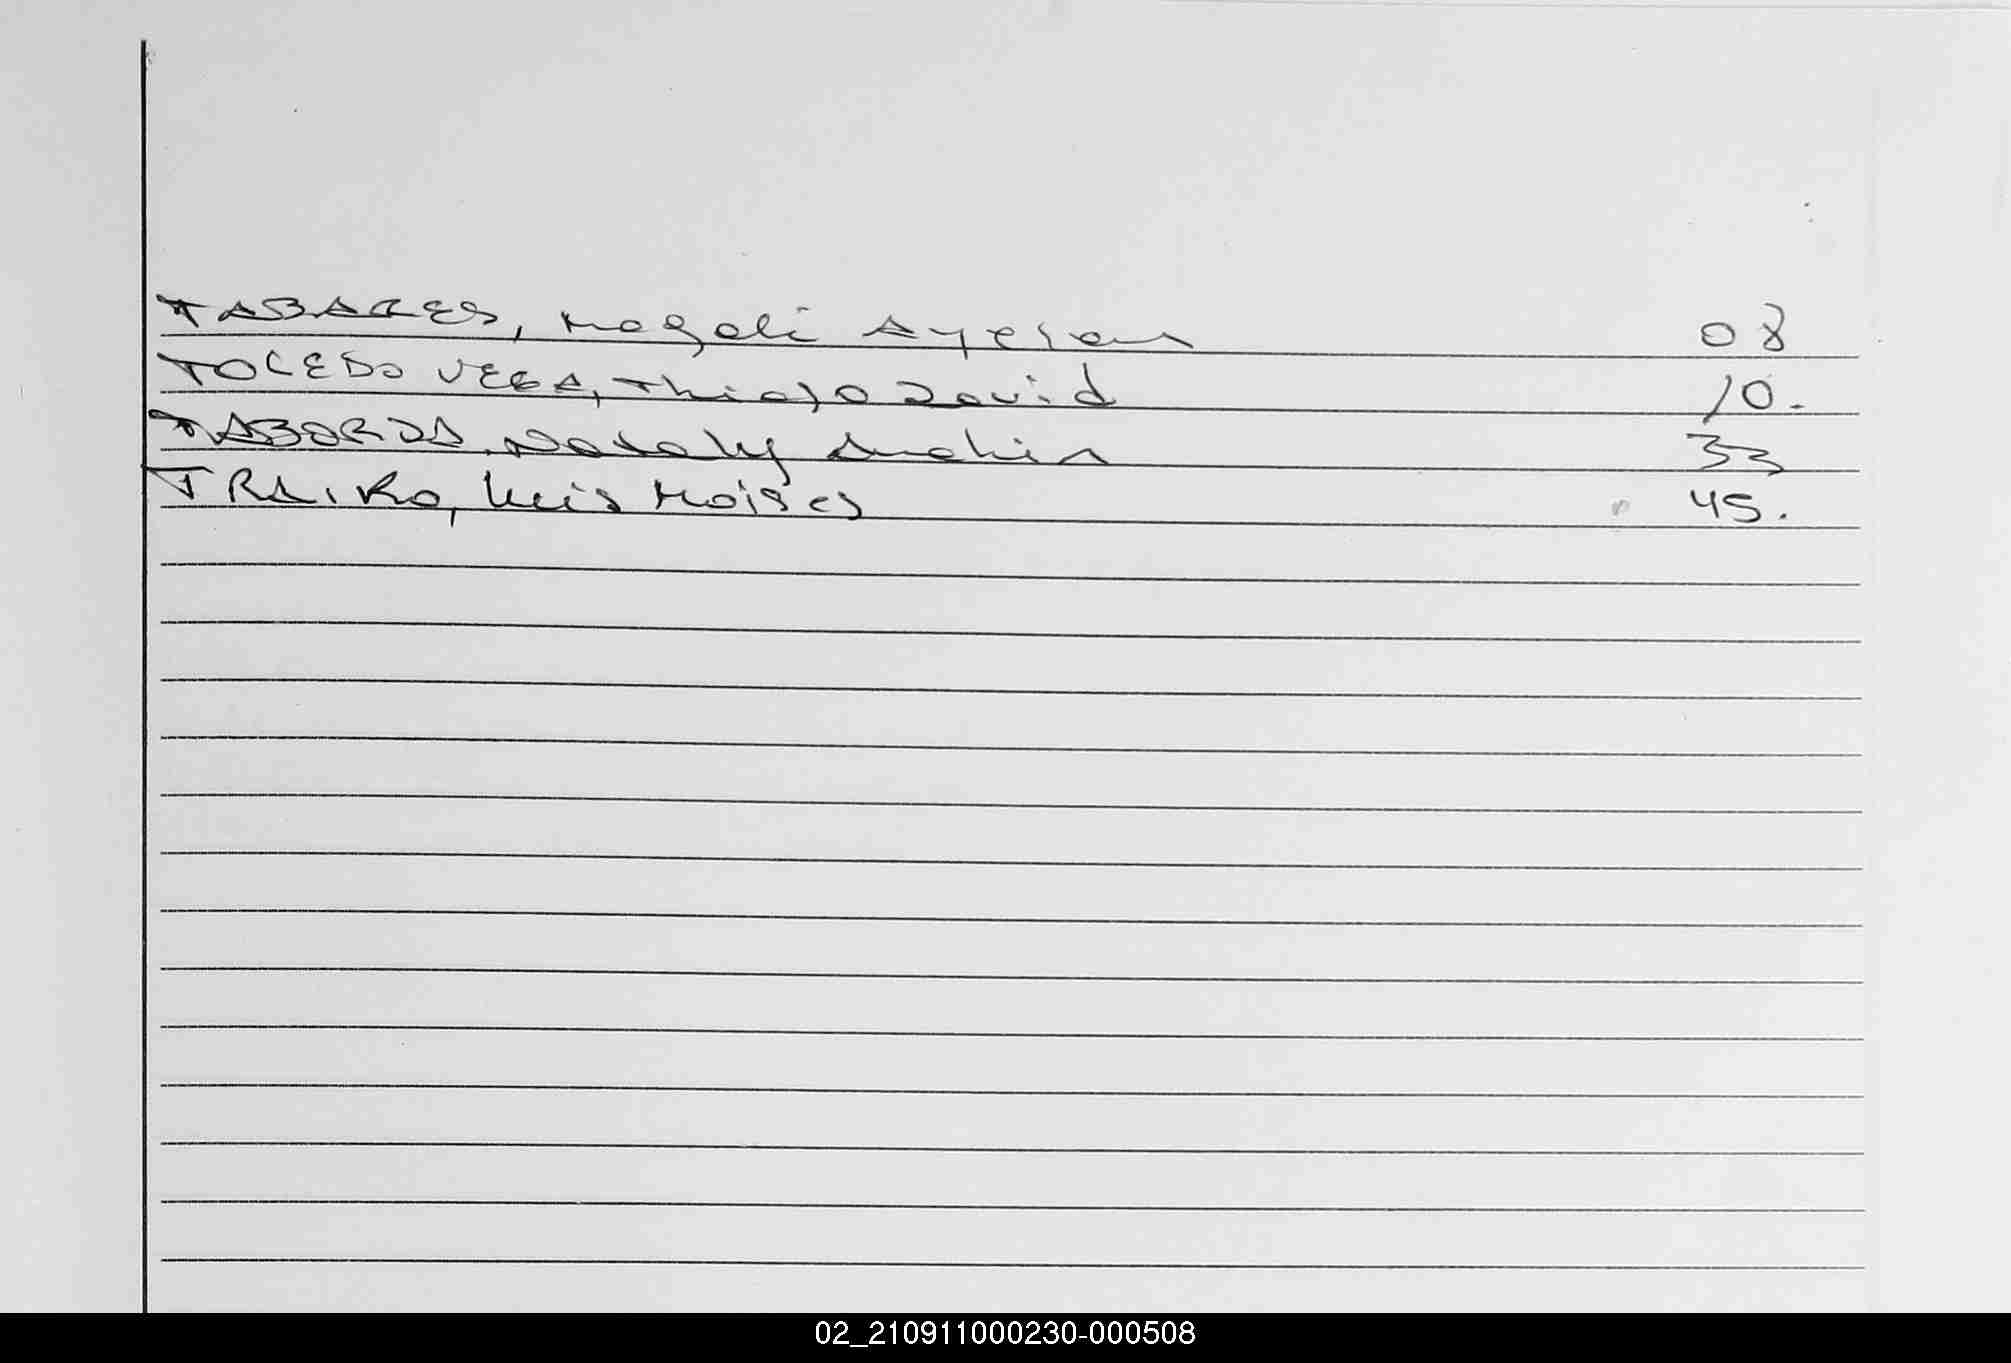 TABARES, Magali Ayelen 08
TOLEDO VEGA, Thiago David 10.
TABORDA, Nataly 33
TRAIKO, Luis Moises 45.
02_210911000230-000508